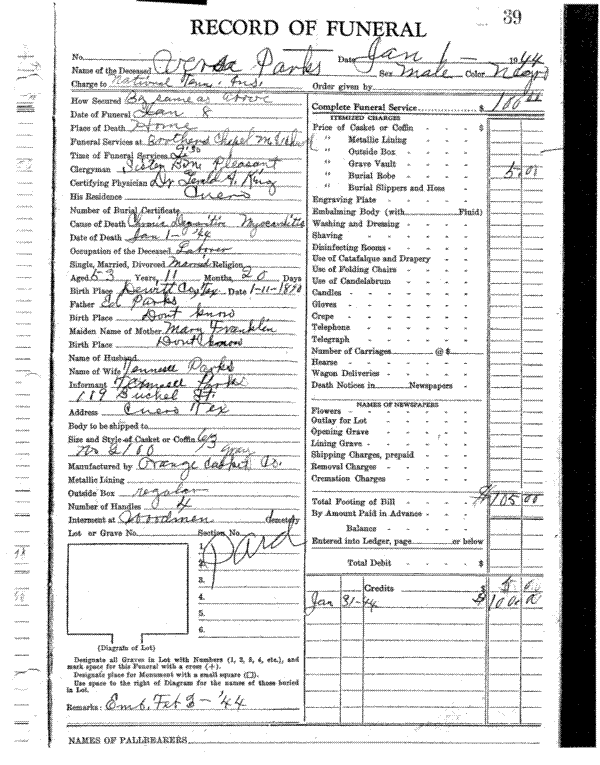 39
RECORD OF FUNERAL
No. Date Jan 1 - 1944
Name of the Deceased Parks Sex Male Color Negro
Charge to National Ins. Order given by
How Secured By same as above
Date of Funeral Jan 8
Place of Death Home
Funeral Services at Chapel
Time of Funeral Services
Clergyman Pleasant
Certifying Physician Dr. A. King
His Residence Cuero
Number of Burial Certificate
Cause of Death Chronic Myocarditis
Date of Death Jan 1 - '44
Occupation of the Deceased Laborer
Single, Married, Divorced Married Religion
Aged 53 Years, 11 Months, 20 Days
Birth Place Dewitt Co, Tex. Date 1-11-1890
Father Parks
Birth Place Dont know
Maiden Name of Mother Mary Franklin
Birth Place Dont know
Name of Husband
Name of Wife Parks
Informant
119 Buchel St.
Address Cuero Tex
Body to be shipped to
Size and Style of Casket or Coffin 6/3
No 2100 gray
Manufactured by Orange Casket Co.
Metallic Lining
Outside Box regular
Number of Handles 4
Interment at Woodmen cemetery
Lot or Grave No. Section No.
1.
2.
3.
4.
5.
6.
Paid
(Diagram of Lot)
Designate all Graves in Lot with Numbers (1, 2, 3, 4, etc.), and
mark space for this Funeral with a cross (+).
Designate place for Monument with a small square (□).
Use space to the right of Diagram for the names of those buried
in Lot.
Remarks: Emb. Feb 2 - '44
NAMES OF PALLBEARERS
Complete Funeral Service $ 100 00
ITEMIZED CHARGES
Price of Casket or Coffin - - - $
" Metallic Lining
" Outside Box
" Grave Vault
" Burial Robe 5.00
" Burial Slippers and Hose
Engraving Plate
Embalming Body (with Fluid)
Washing and Dressing
Shaving
Disinfecting Rooms
Use of Catafalque and Drapery
Use of Folding Chairs
Use of Candelabrum
Candles
Gloves
Crepe
Telephone
Telegraph
Number of Carriages @ $
Hearse
Wagon Deliveries
Death Notices in Newspapers
NAMES OF NEWSPAPERS
Flowers
Outlay for Lot
Opening Grave
Lining Grave
Shipping Charges, prepaid
Removal Charges
Cremation Charges
Total Footing of Bill $ 105 00
By Amount Paid in Advance
Balance
Entered into Ledger, page or below
Total Debit $
Credits $
Jan 31-44 $ 100